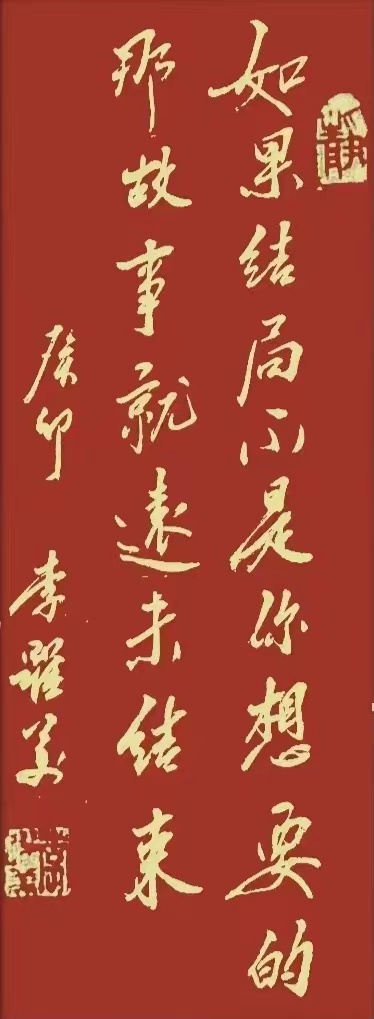 如果结局不是你想要的
那故事就遠未结束
癸卯 李躍美